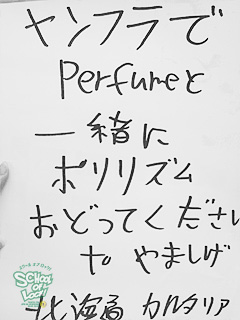 ヤンフラで
Perfumeと
一緒に
ポリリズム
おどってください
to やましげ
SCHOOL
OF
LOCK!
北海道 カルタリア